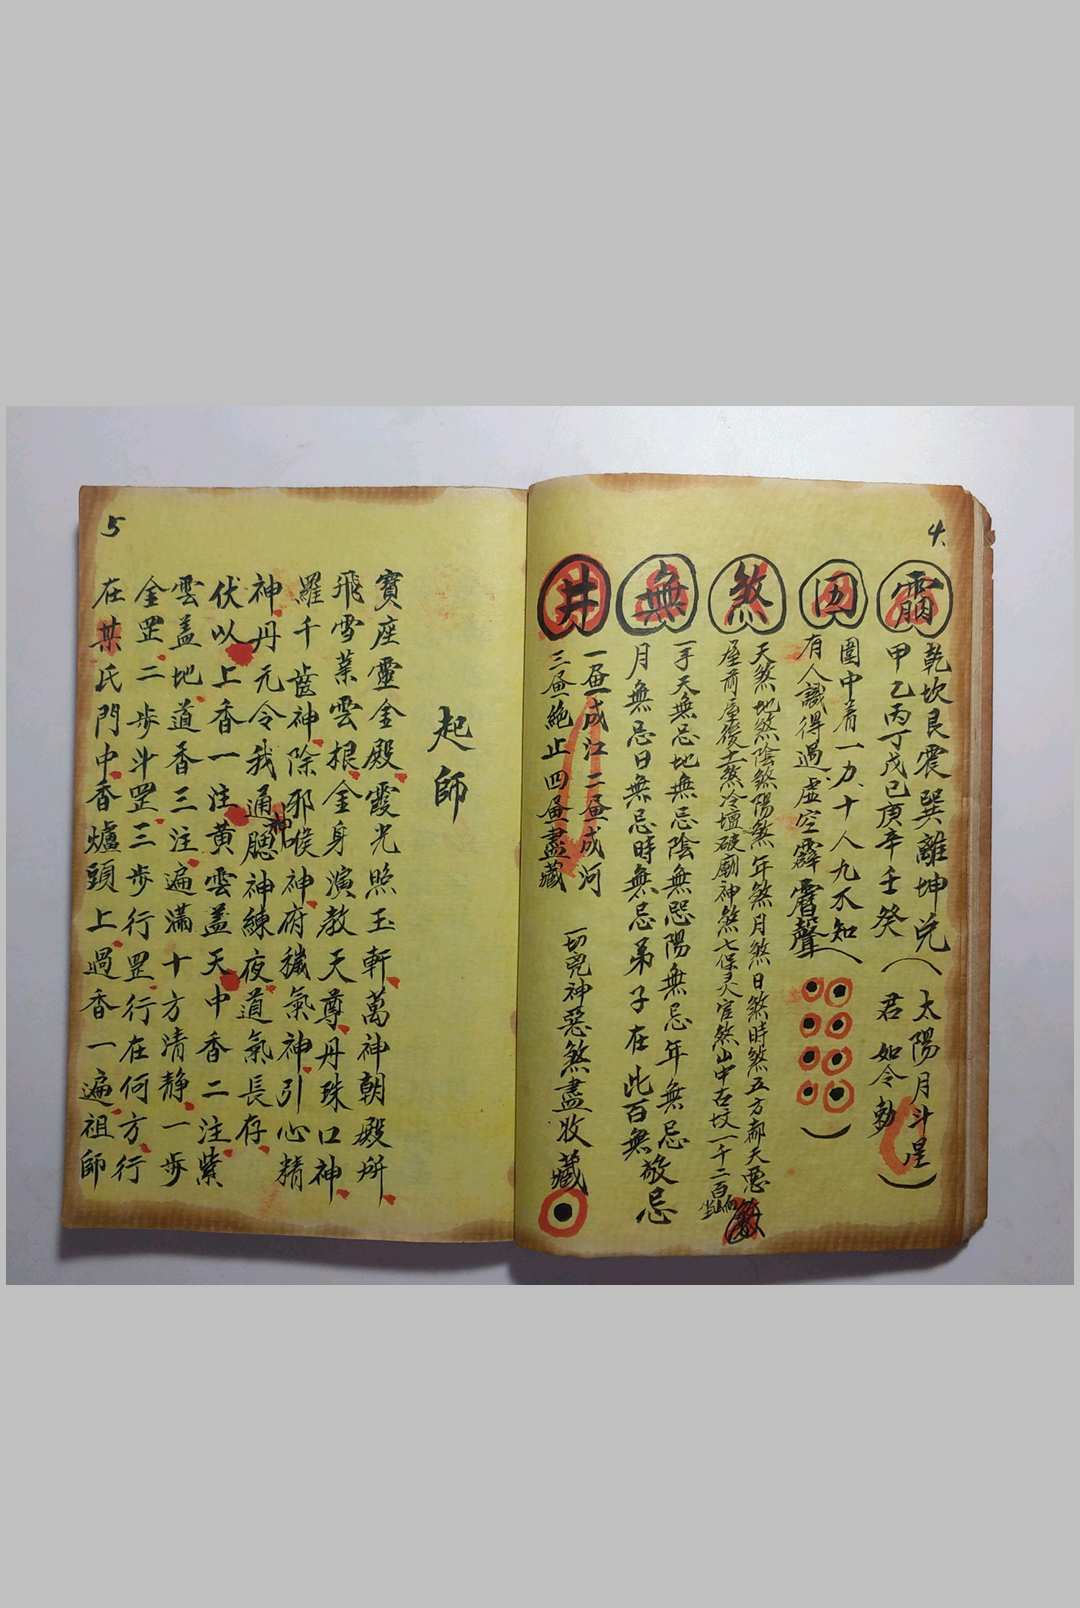 4.
霘
乾坎艮震巽離坤兑
太陽月斗星
甲乙丙丁戊己庚辛壬癸
君 如令勅
囩
圍中着一力十人九不知
有人識得過虛空霹靂聲
煞
天煞地煞陰煞陽煞年煞月煞日煞時煞五方都天惡
屋前屋後土煞冷壇破廟神煞七保灵官煞山中古坟一千二百
無
一手天無忌地無忌陰無忌陽無忌年無忌
月無忌日無忌時無忌弟子在此百無敬忌
井
一畫成江二畫成河
三畫絶止四畫盡藏
一切兇神惡煞盡收藏
5
起師
寳座靈金殿霞光照玉軒萬神朝殿所
飛雪葉雲根金身演教天尊丹珠口神
羅千齒神除邪喉神府穢氣神引心精
神丹元令我通神腮神練夜道氣長存
伏以上香一注黄雲盖天中香二注紫
雲盖地道香三注遍滿十方清静一步
金罡二步斗罡三步行罡行在何方行
在某氏門中香爐頭上過香一遍祖師